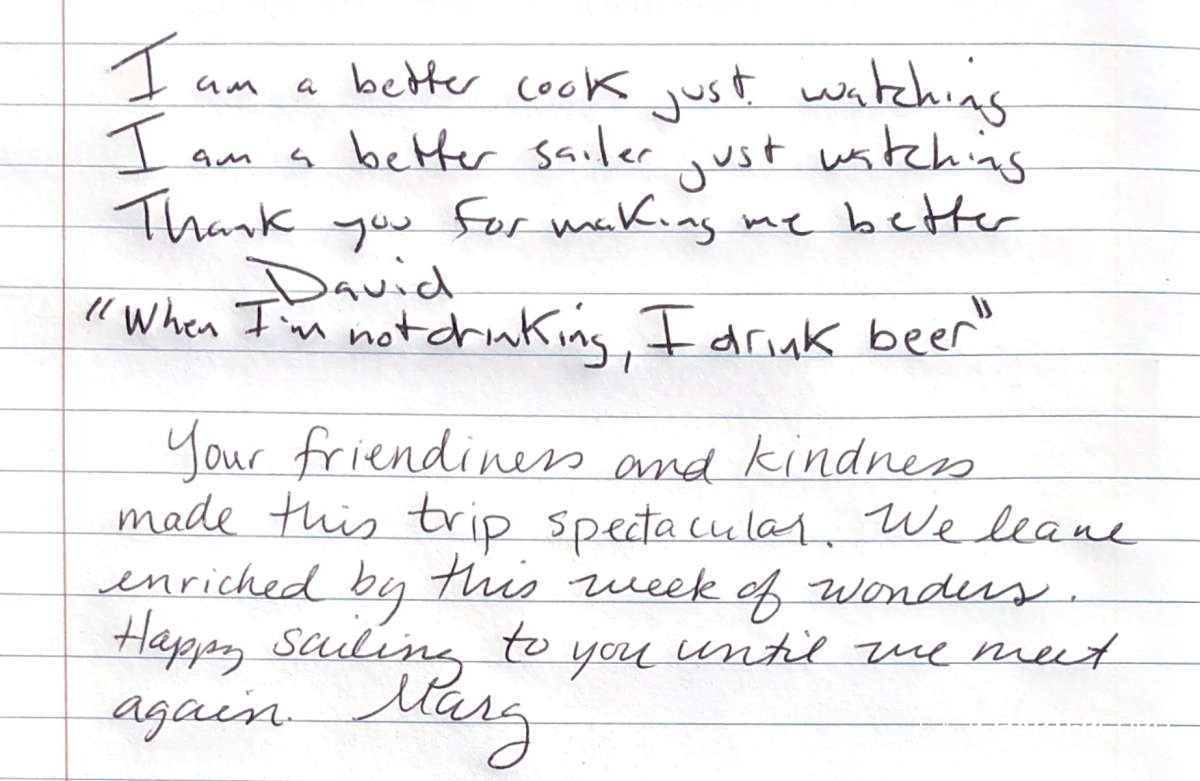 I am a better cook just watching
I am a better sailer just watching
Thank you for making me better
David
"When I'm not drinking, I drink beer"
Your friendiness and kindness
made this trip spectacular. We leave
enriched by this week of wonders.
Happy sailing to you until we meet
again. Marg